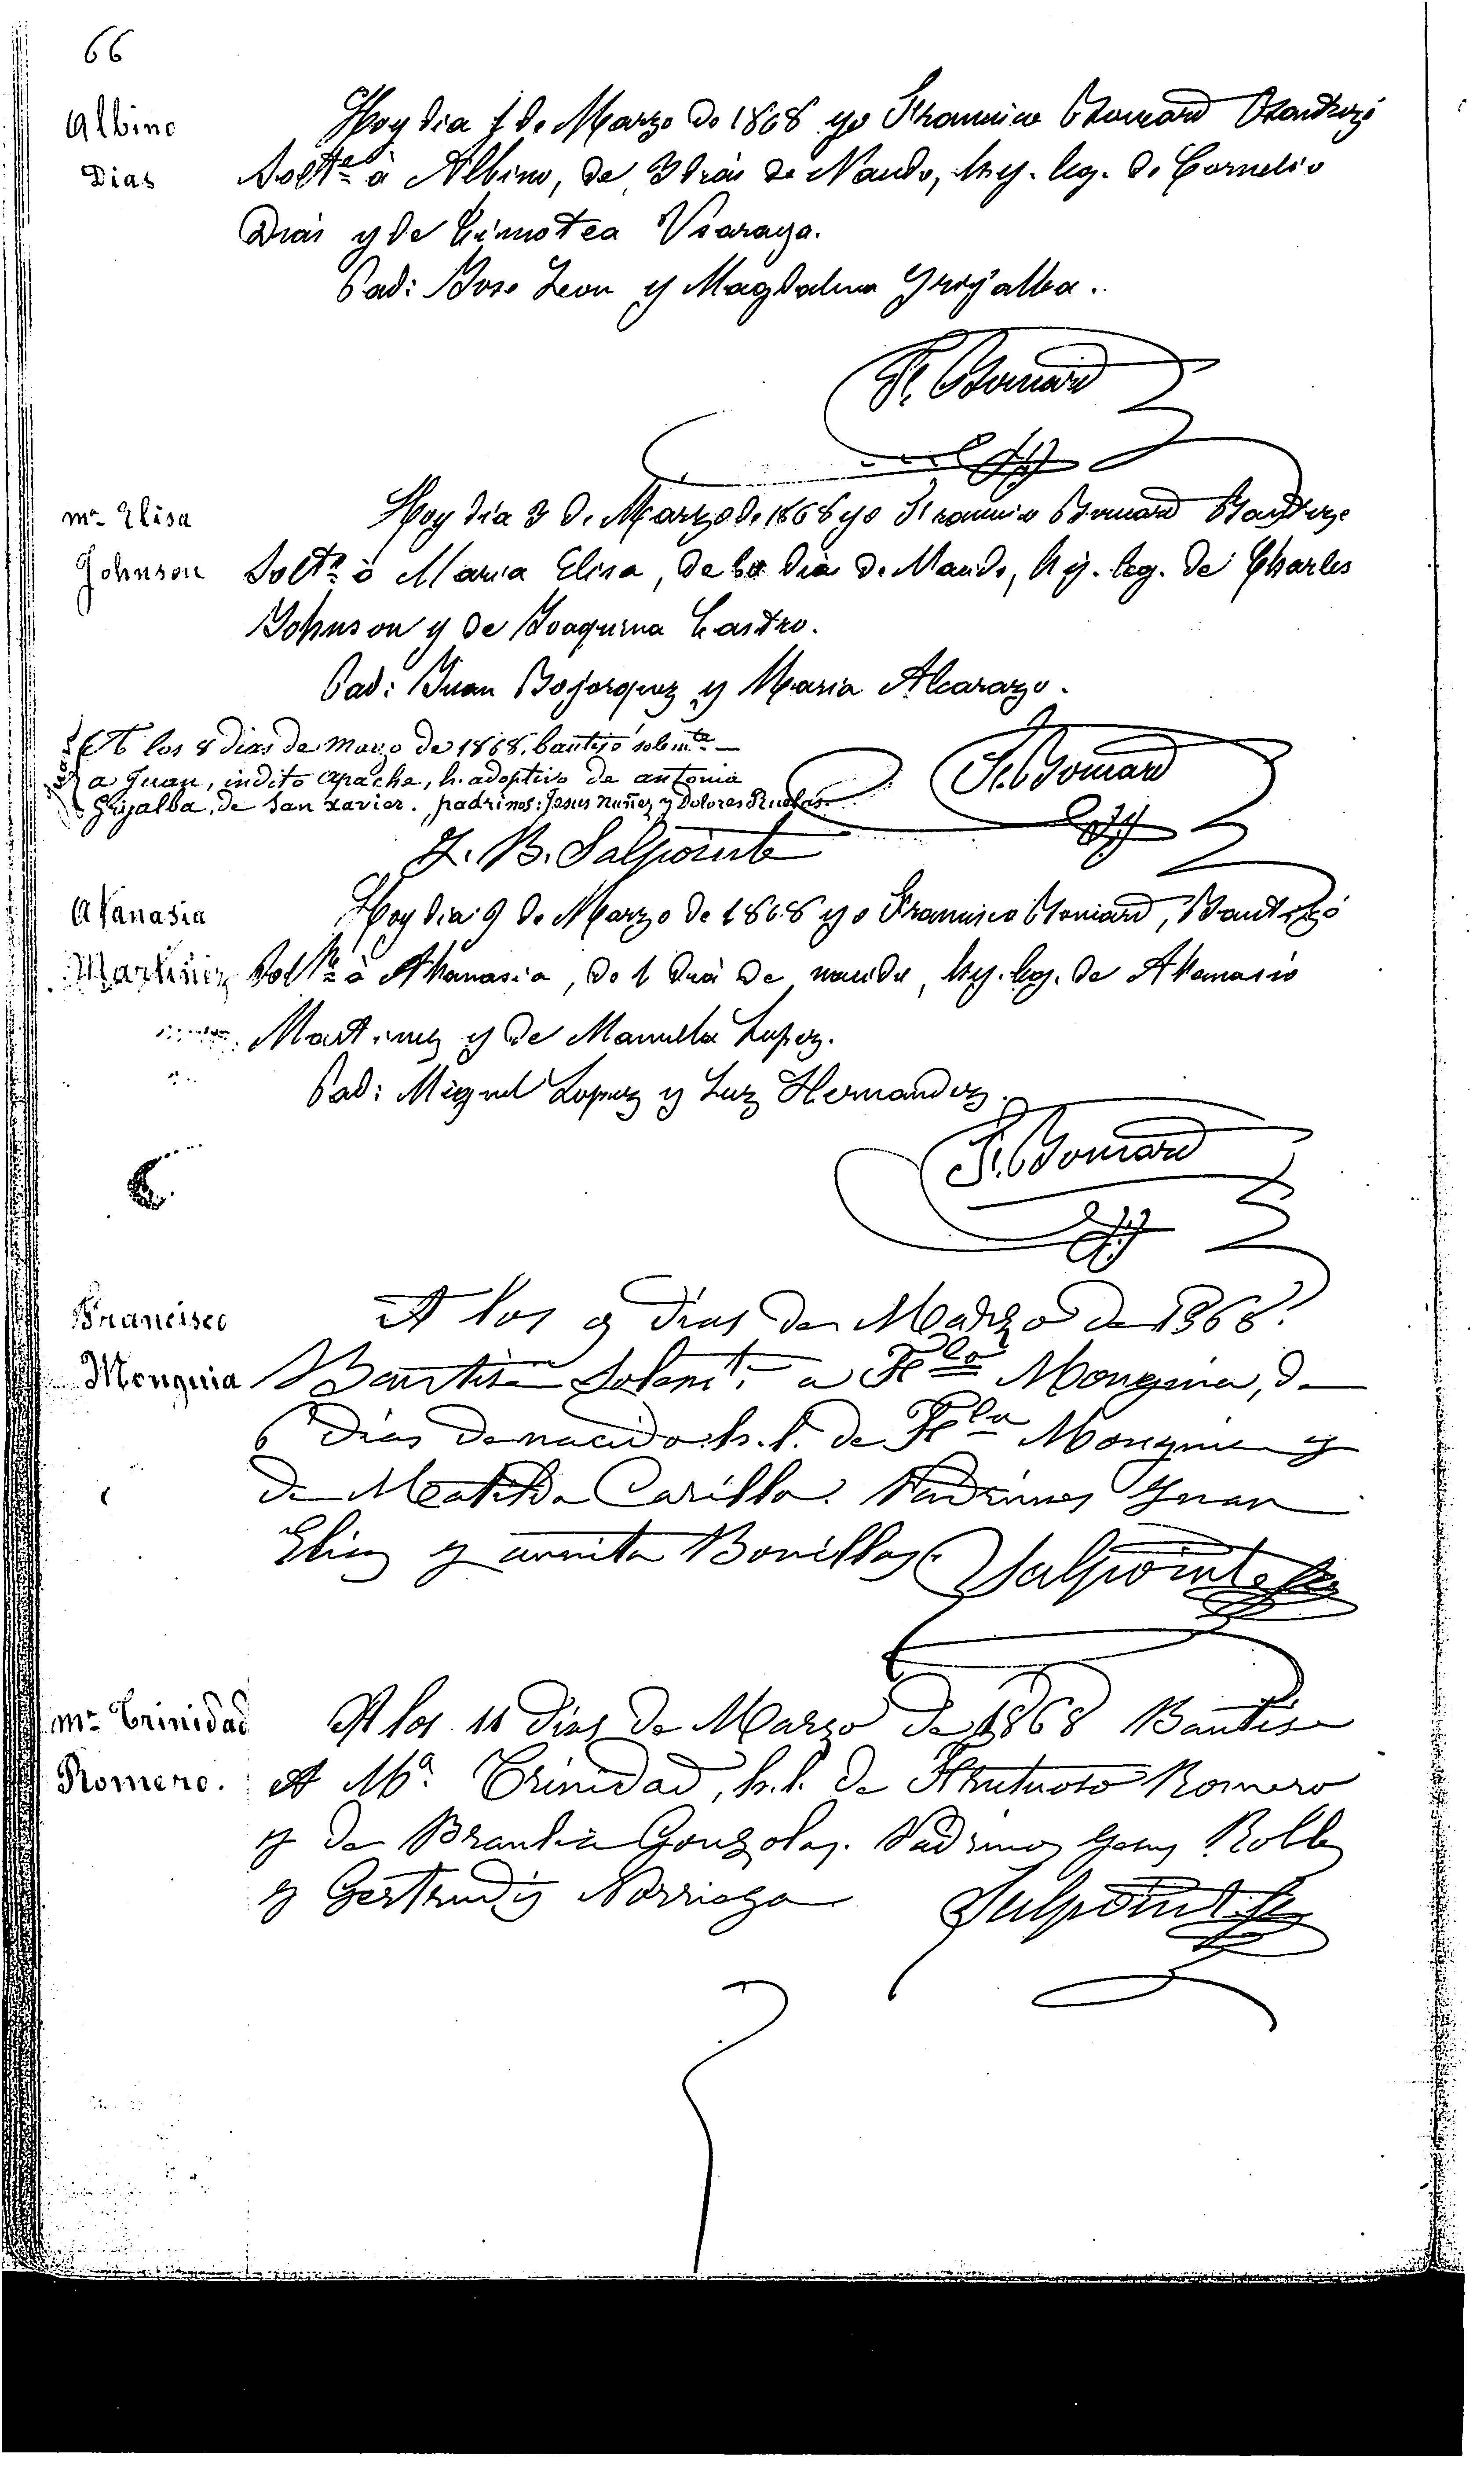 66
Albino
Dias
Hoy dia 1 de Marzo de 1868 yo Francisco Bouard Bautizó
Solte à Albino, de 3 dias de Naudo, hij. leg. de Cornelio
Dias y de Timotea Usaraga.
Pad: Jose Leon y Magdalena Grijalba.
F. Bouard
Ma Elisa
Johnson
Hoy dia 3 de Marzo de 1868 yo Francisco Bouard Bautize
Solte à Maria Elisa, de dias de Naudo, hij. leg. de Charles
Johnson y de Joaquina Castro.
Pad: Juan Bojorquez y Maria Alcarazo.
F. Bouard
Juan
A los 8 dias de Mayo de 1868, bautisó solemte
a Juan, indito apache, h. adoptivo de antonia
Grijalba, de San Xavier. padrinos: Jesus Nuñez y Dolores Ruelas.
J. B. Salpointe
Atanasia
Martinez
Hoy dia 9 de Marzo de 1868 yo Francisco Bouard, Bautizó
Solte à Athanasia, de 1 dia de naudo, hij. leg. de Atanasio
Martinez y de Manuella Lopez.
Pad: Miguel Lopez y Luz Hernandez.
F. Bouard
Francisco
Monguia
A los 9 dias de Marzo de 1868.
Bautisé Solemt. a Fco Monguia, de
6 dias de nacido h. l. de Fco Monguia y
de Matilda Carillo. Padrinos Juan
Elias y annita Bonillas. Salpointe
Ma Trinidad
Romero.
A los 11 dias de Marzo de 1868 Bautisé
A Ma. Trinidad, h. l. de Frutuoso Romero
y de Braulia Gonzales. Padrinos Jesus Robles
y Gertrudis Norriega Salpointe